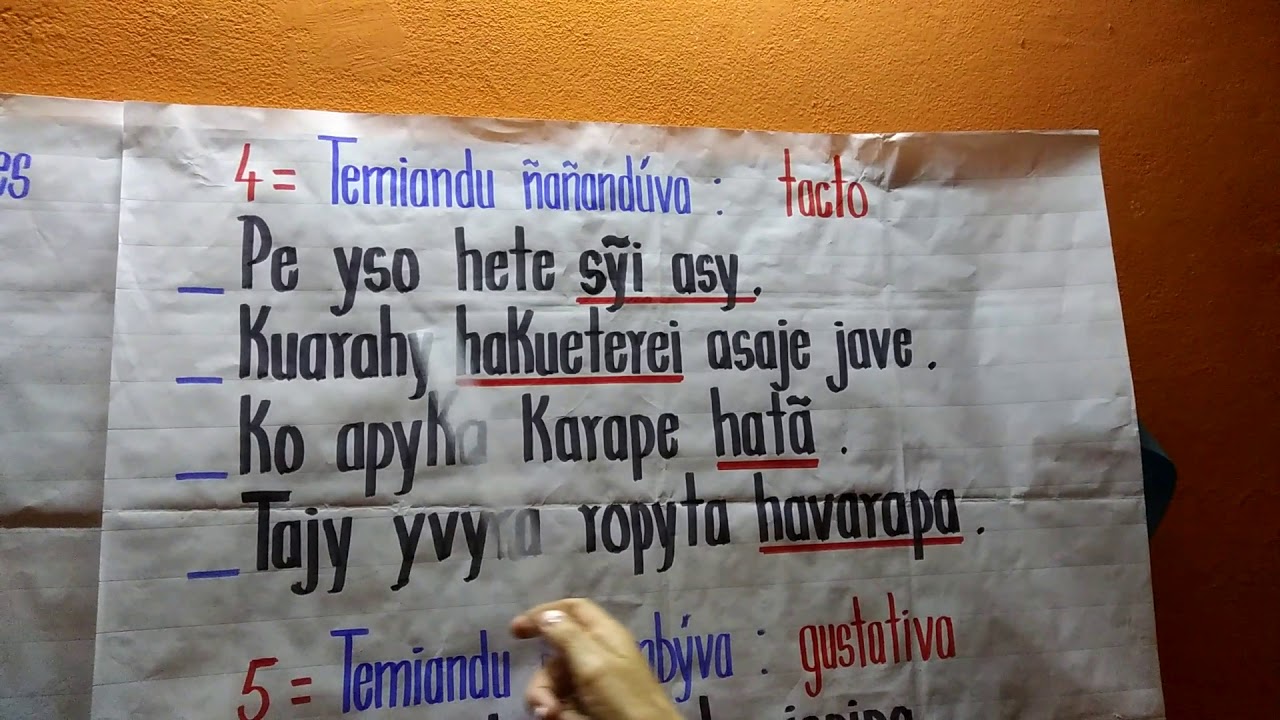 es
4 = Temiandu ñañandúva : tacto
_ Pe yso hete sỹi asy.
_ Kuarahy hakueterei asaje jave.
_ Ko apyka Karape hatã.
_ Tajy yvyra ropyta havarapa.
5 = Temiandu : gustativa